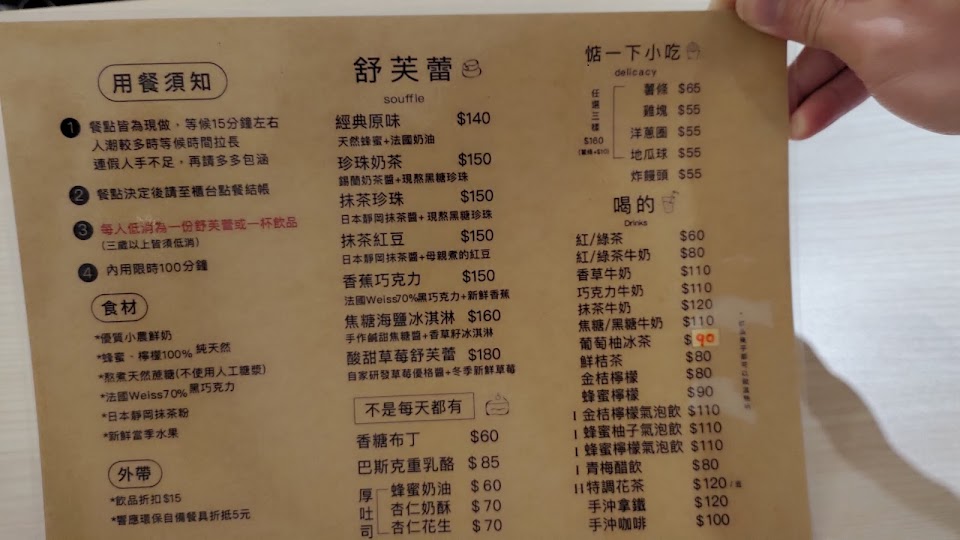 用餐須知
1 餐點皆為現做，等候15分鐘左右
人潮較多時等候時間拉長
連假人手不足，再請多多包涵
2 餐點決定後請至櫃台點餐結帳
3 每人低消為一份舒芙蕾或一杯飲品
(三歲以上皆須低消)
4 內用限時100分鐘
食材
*優質小農鮮奶
*蜂蜜、檸檬100% 純天然
*熬煮天然蔗糖(不使用人工糖漿)
*法國Weiss70%黑巧克力
*日本靜岡抹茶粉
*新鮮當季水果
外帶
*飲品折扣$15
*響應環保自備餐具折抵5元
舒芙蕾
souffle
經典原味 $140
天然蜂蜜+法國奶油
珍珠奶茶 $150
錫蘭奶茶醬+現熬黑糖珍珠
抹茶珍珠 $150
日本靜岡抹茶醬+現熬黑糖珍珠
抹茶紅豆 $150
日本靜岡抹茶醬+母親煮的紅豆
香蕉巧克力 $150
法國Weiss70%黑巧克力+新鮮香蕉
焦糖海鹽冰淇淋 $160
手作鹹甜焦糖醬+香草籽冰淇淋
酸甜草莓舒芙蕾 $180
自家研發草莓優格醬+冬季新鮮草莓
不是每天都有
香糖布丁 $60
巴斯克重乳酪 $85
厚吐司
蜂蜜奶油 $60
杏仁奶酥 $70
杏仁花生 $70
惦一下小吃
delicacy
任選三樣
$160
(薯條+$10)
薯條 $65
雞塊 $55
洋蔥圈 $55
地瓜球 $55
炸饅頭 $55
喝的
Drinks
紅/綠茶 $60
紅/綠茶牛奶 $80
香草牛奶 $110
巧克力牛奶 $110
抹茶牛奶 $120
焦糖/黑糖牛奶 $110
葡萄柚冰茶 $90
鮮桔茶 $80
金桔檸檬 $80
蜂蜜檸檬 $90
I 金桔檸檬氣泡飲 $110
I 蜂蜜柚子氣泡飲 $110
I 蜂蜜檸檬氣泡飲 $110
I 青梅醋飲 $80
H特調花茶 $120/壺
手沖拿鐵 $120
手沖咖啡 $100